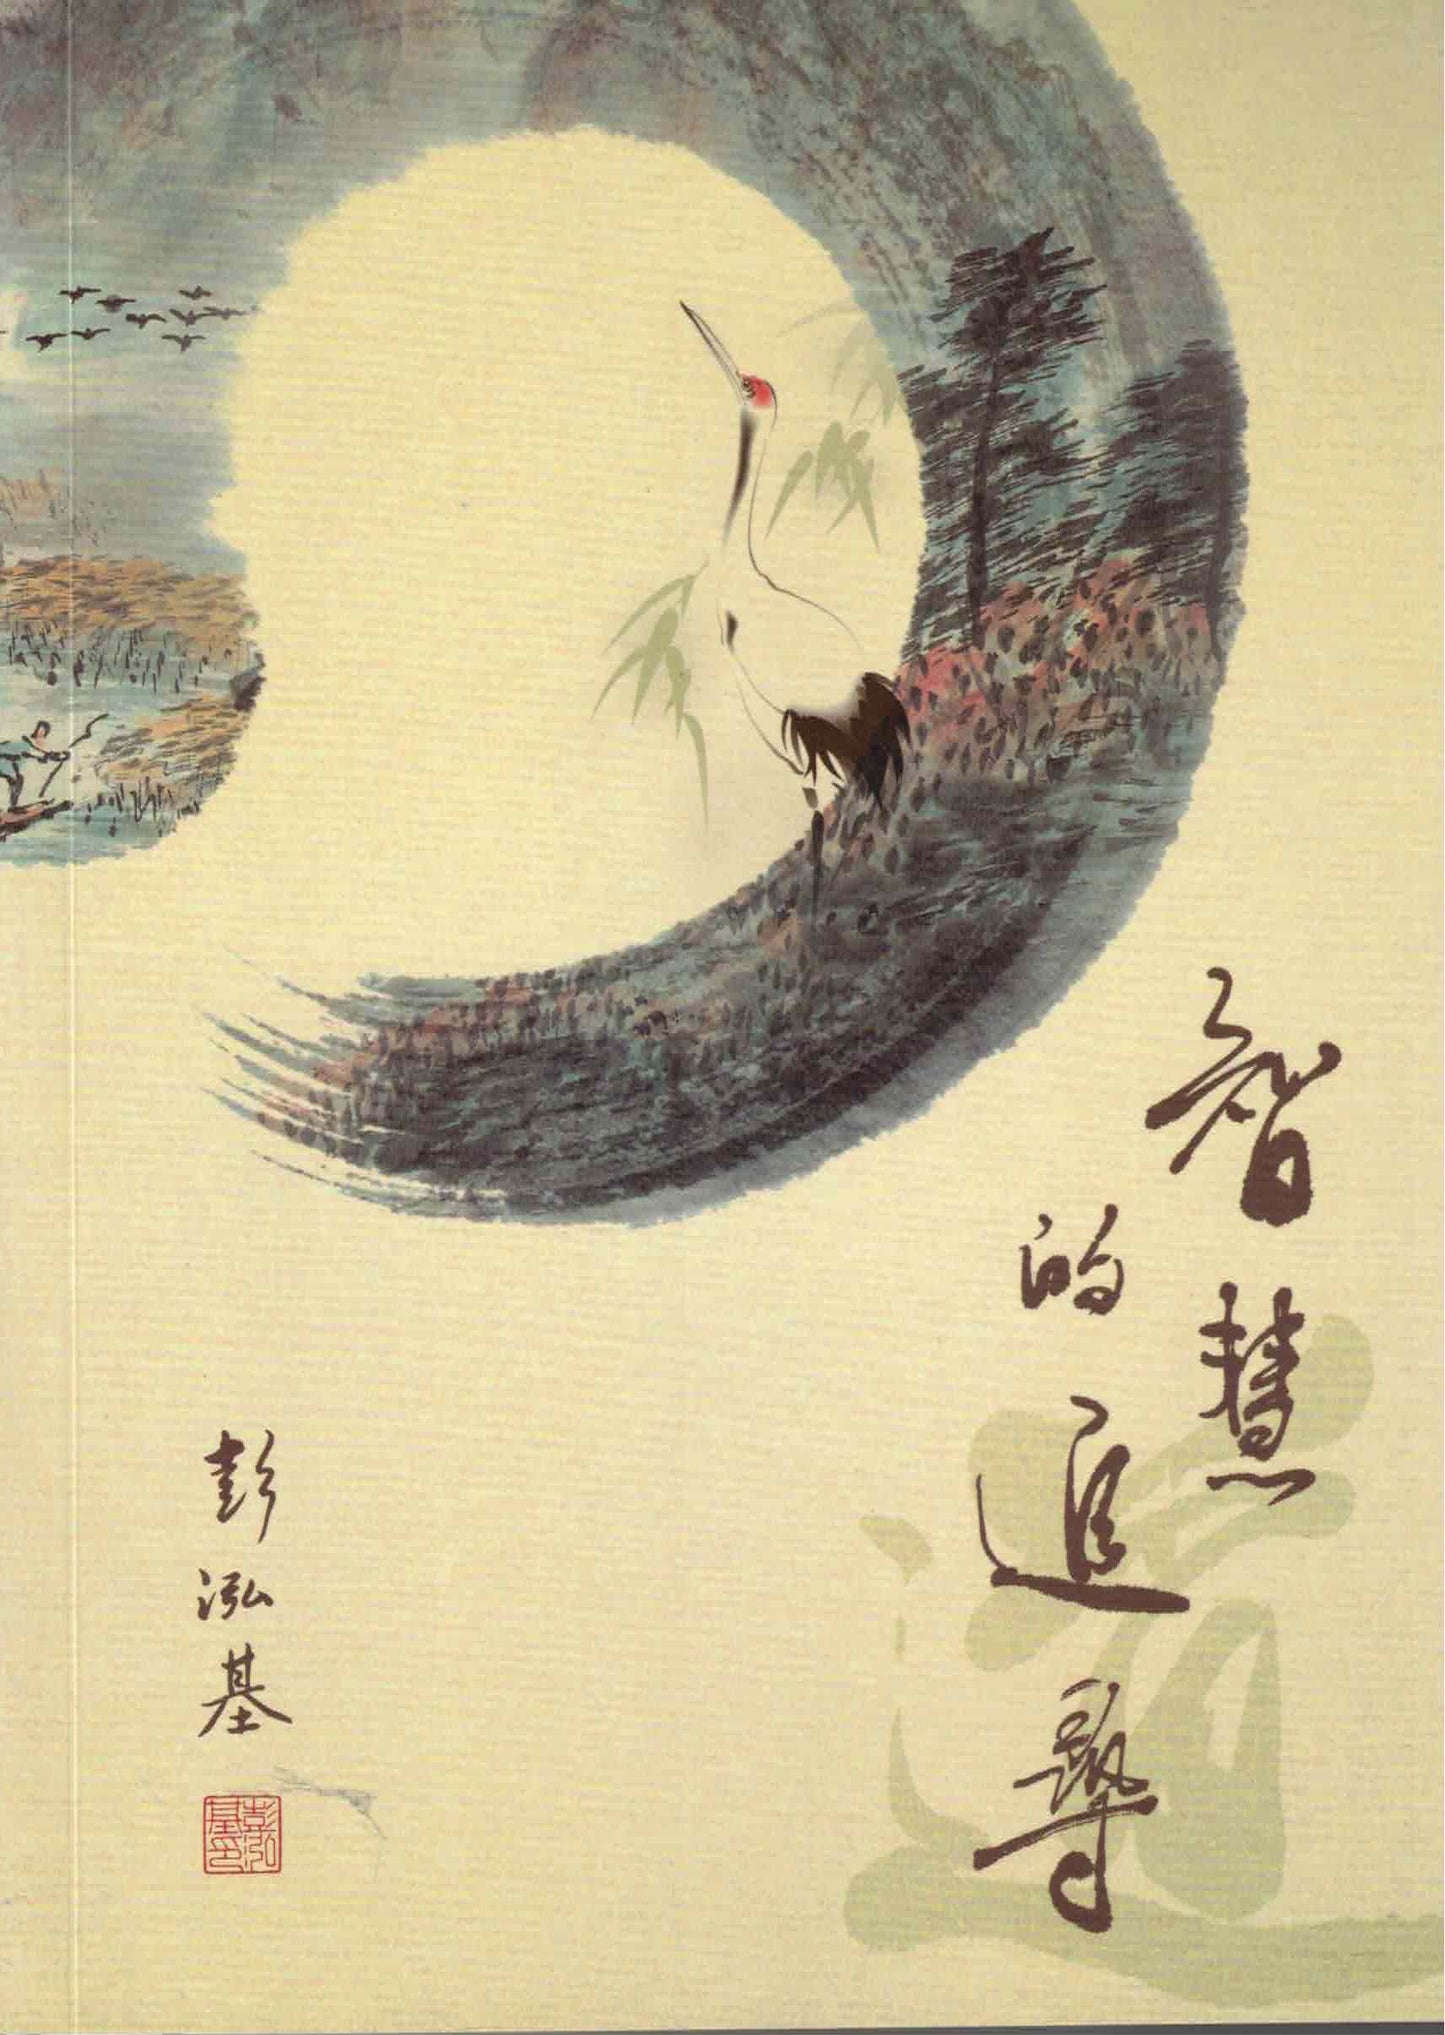 智慧
的追尋
彭泓基
彭泓
基印
道